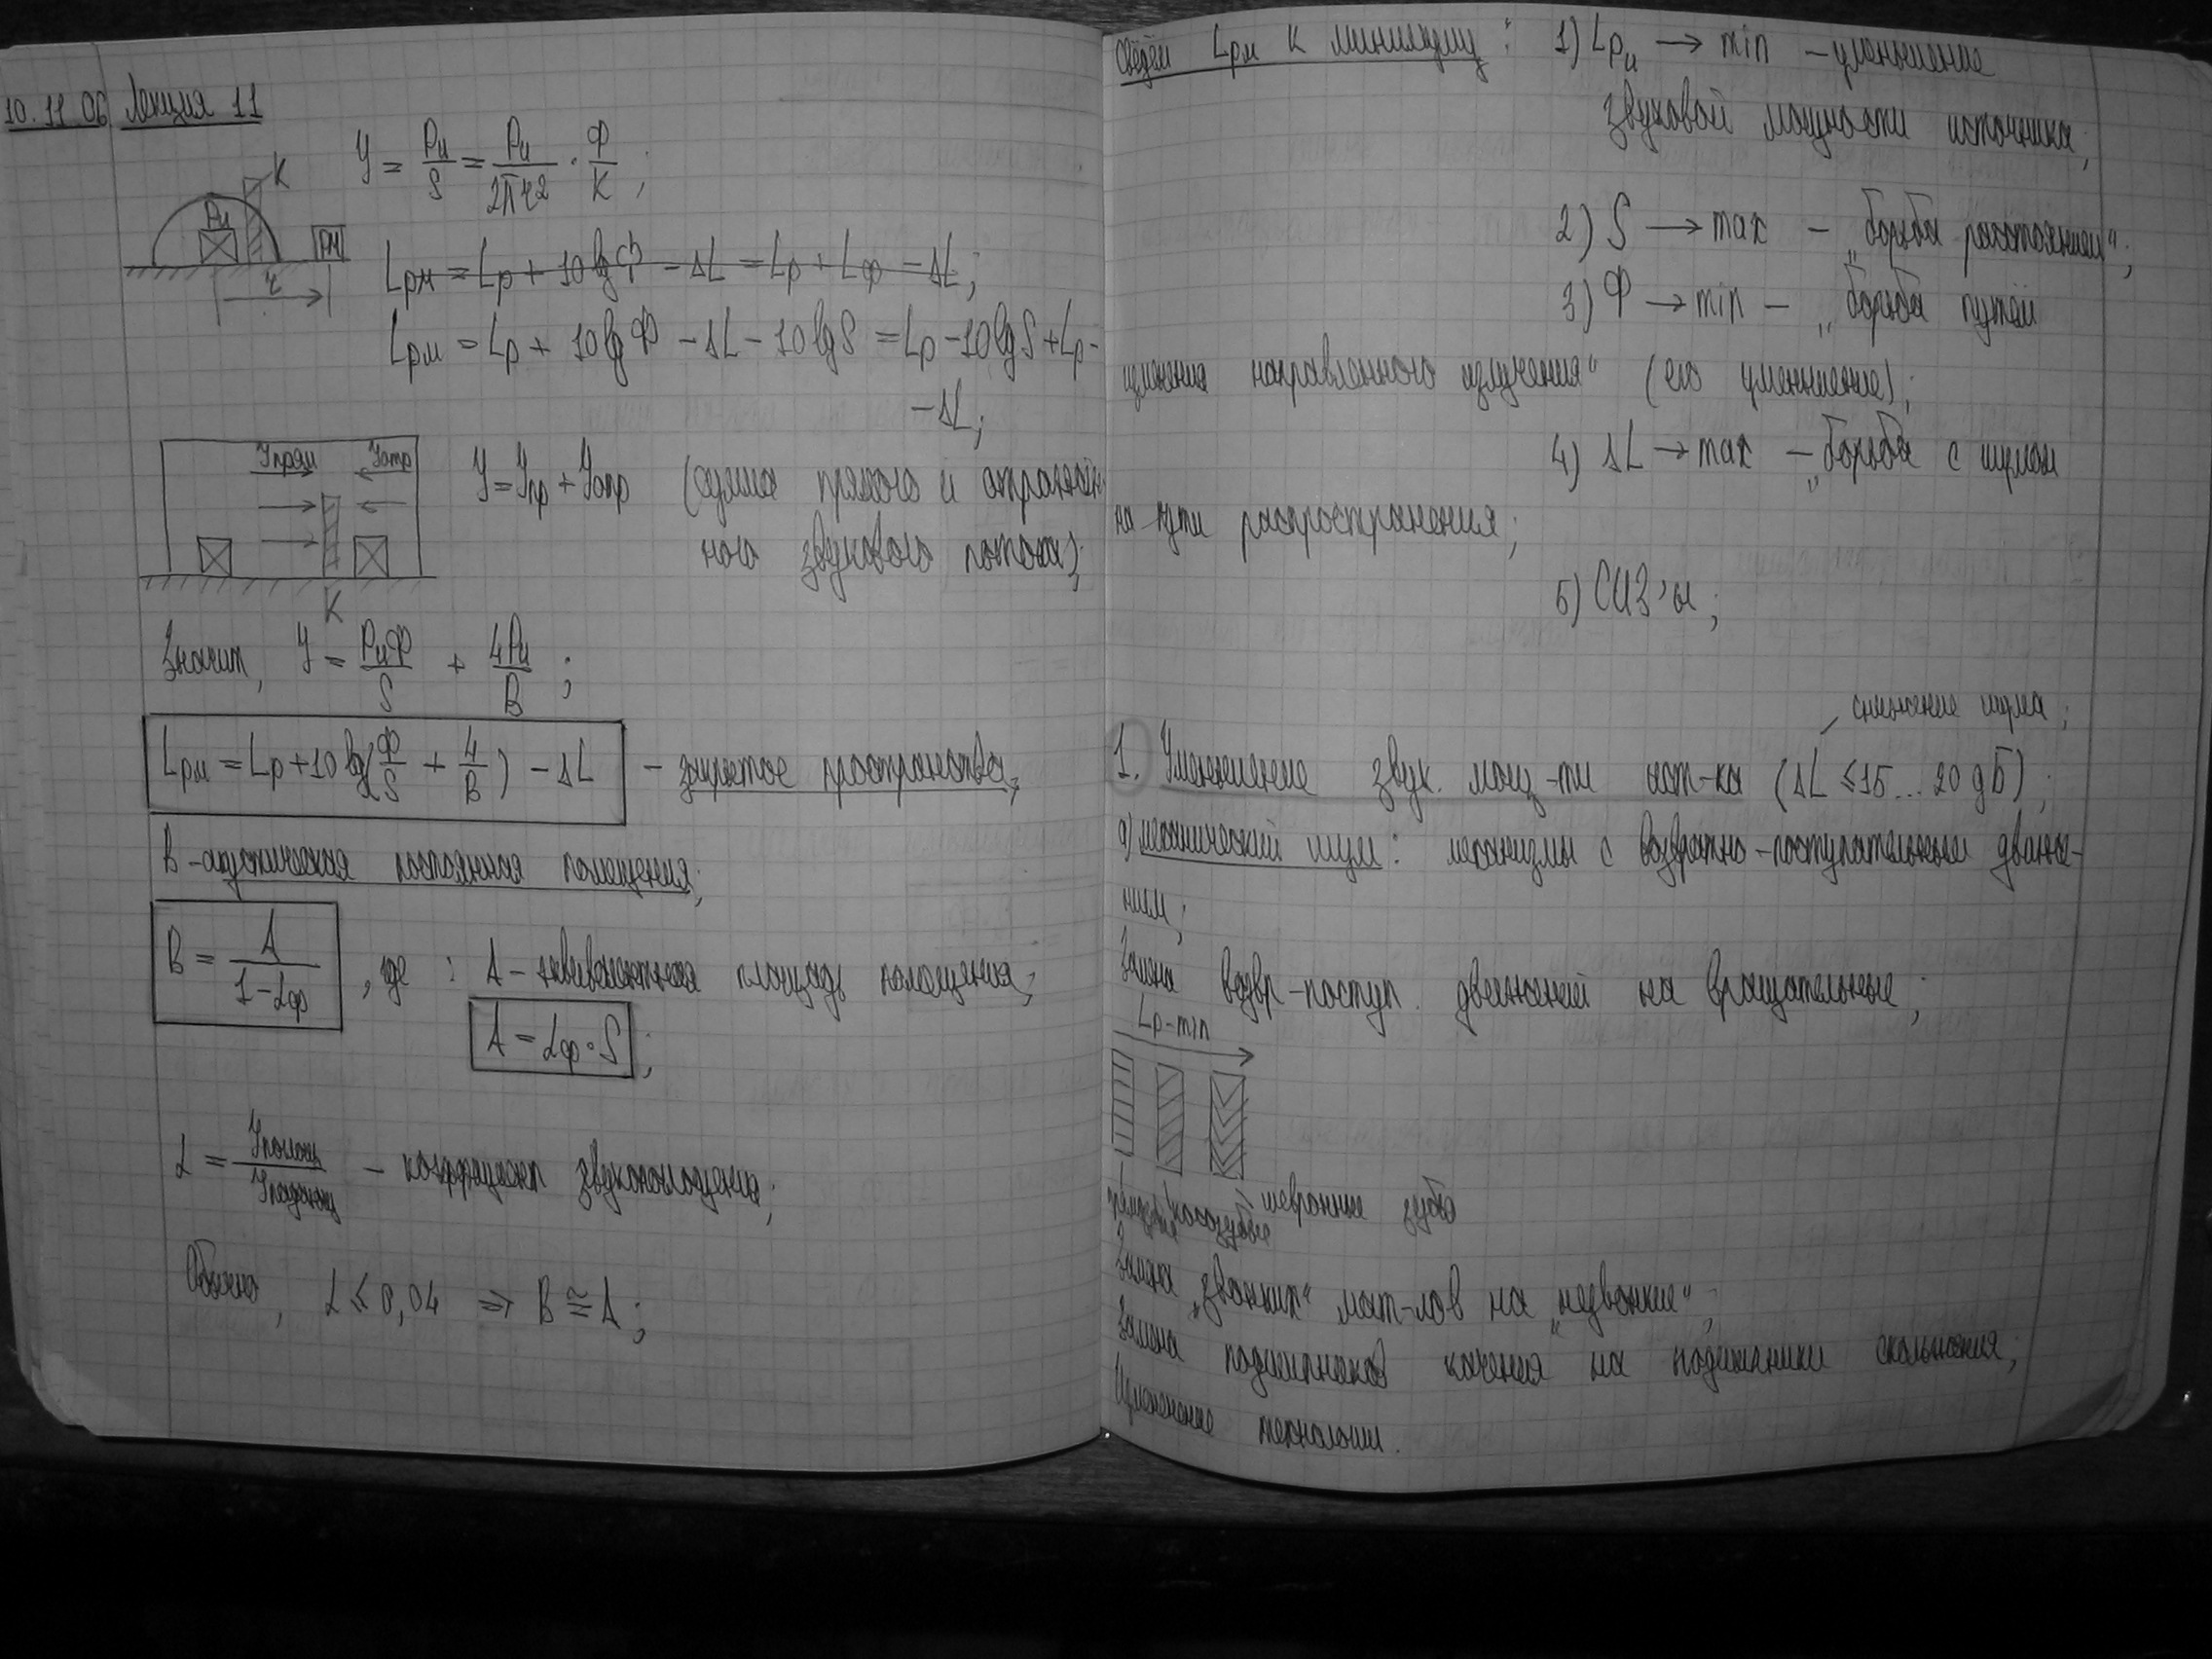 10.11.06 Лекция 11
K
Pи
РМ
r
У = Pи/S = Pи/2πr2 · Ф/K ;
Lрм = Lр + 10 lg Ф - ΔL = Lр + Lф - ΔL;
Lрм = Lр + 10 lg Ф - ΔL - 10 lg S = Lр - 10 lg S + Lр -
- ΔL;
Упрям Уотр
K
У = Упр + Уотр (сумма прямого и отражён
ного звукового потока);
Значит, У = PиФ/S + 4Pи/B ;
Lрм = Lр + 10 lg(Ф/S + 4/B) - ΔL - закрытое пространство;
B - акустическая постоянная помещения;
B = A/1-αср , где : A - эквивалентная площадь поглощения;
A = αср · S ;
α = Упоглощ/Упадающ - коэффициент звукопоглощения;
Обычно, α ≤ 0,04 ⇒ B ≅ A ;
Сведём Lрм к минимуму : 1) Lри → min - уменьшение
звуковой мощности источника;
2) S → max - „борьба расстоянием“;
3) Ф → min - „борьба путём
изменения направленного излучения“ (его уменьшение);
4) ΔL → max - „борьба с шумом
на пути распространения;
5) СИЗ'ы ;
снижение шума ;
1. Уменьшение звук. мощ-ти ист-ка (ΔL ≤ 15...20 дБ) ;
а) механический шум : механизмы с возвратно-поступательным движе-
нием ;
Замена возвр-поступ. движений на вращательные ;
Lр-min
прямозубые косозубые шевронные зубья
Замена „звонких“ мат-лов на „незвонкие“;
Замена подшипников качения на подшипники скольжения;
Изменение технологии.